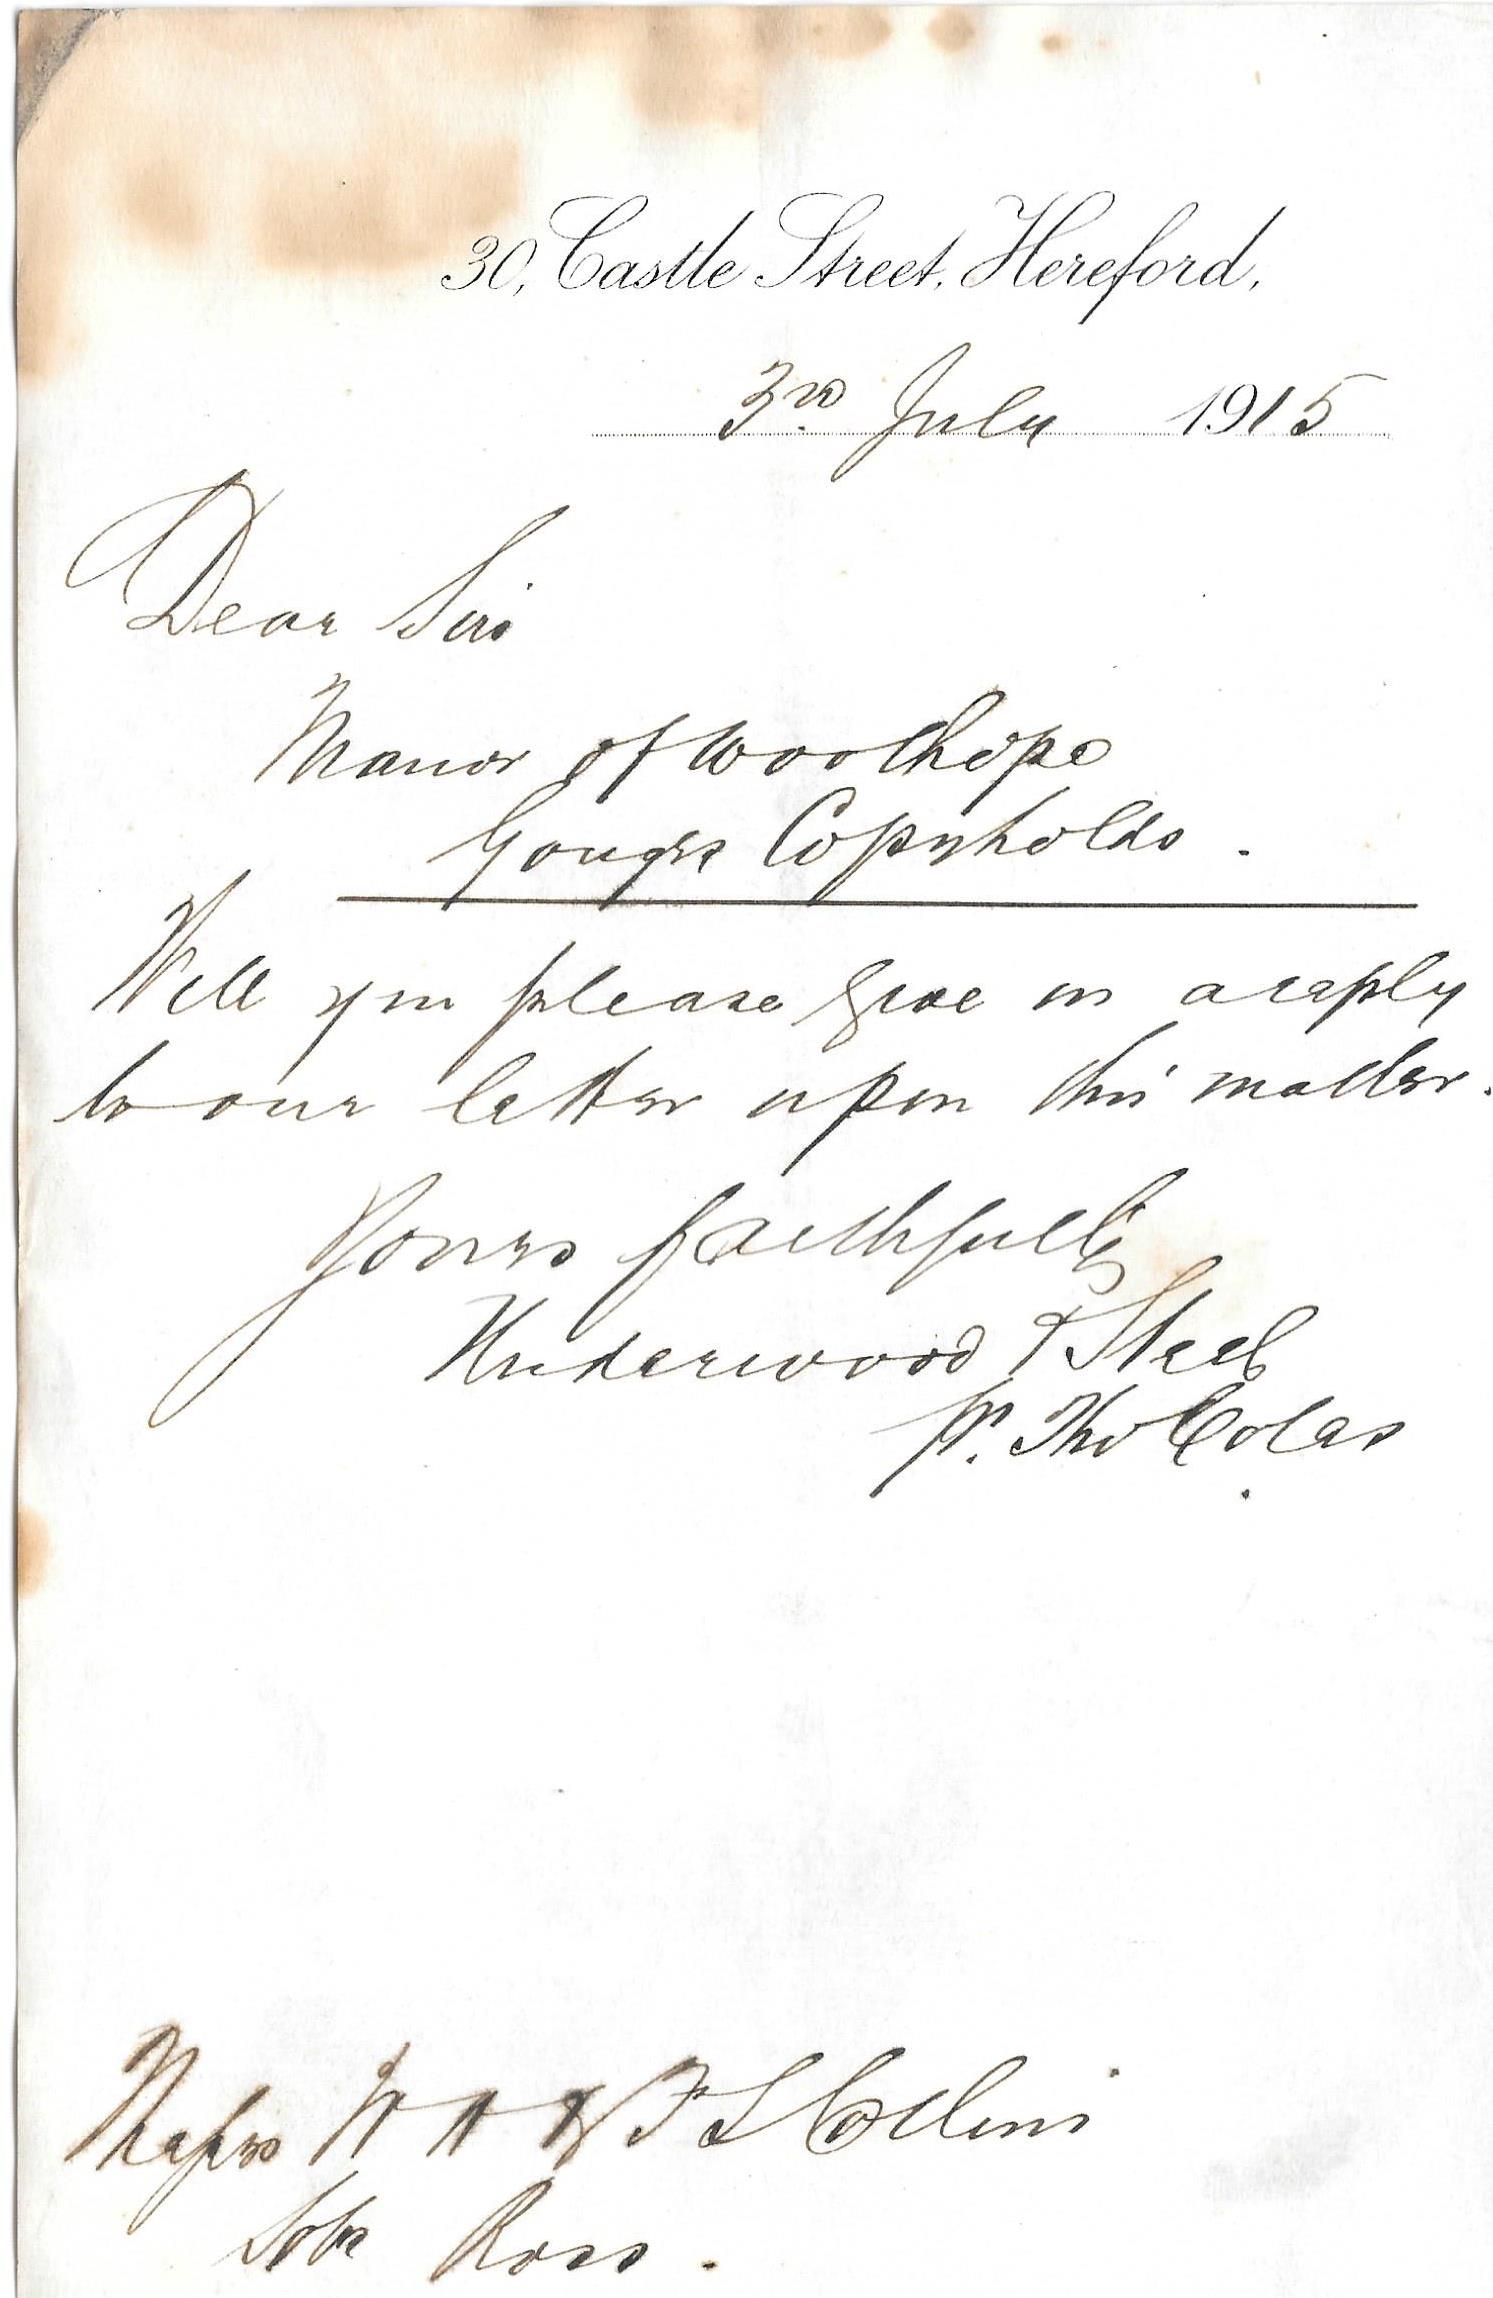 30, Castle Street, Hereford,
3rd July 1915
Dear Sirs
Manor of Woolhope
Copyholds.
Will you please give us a reply
to our letter upon this matter.
Yours faithfully
Underwood & Steel
pr. Tho Coles
Messrs W H & F S Collins
Solrs Ross.